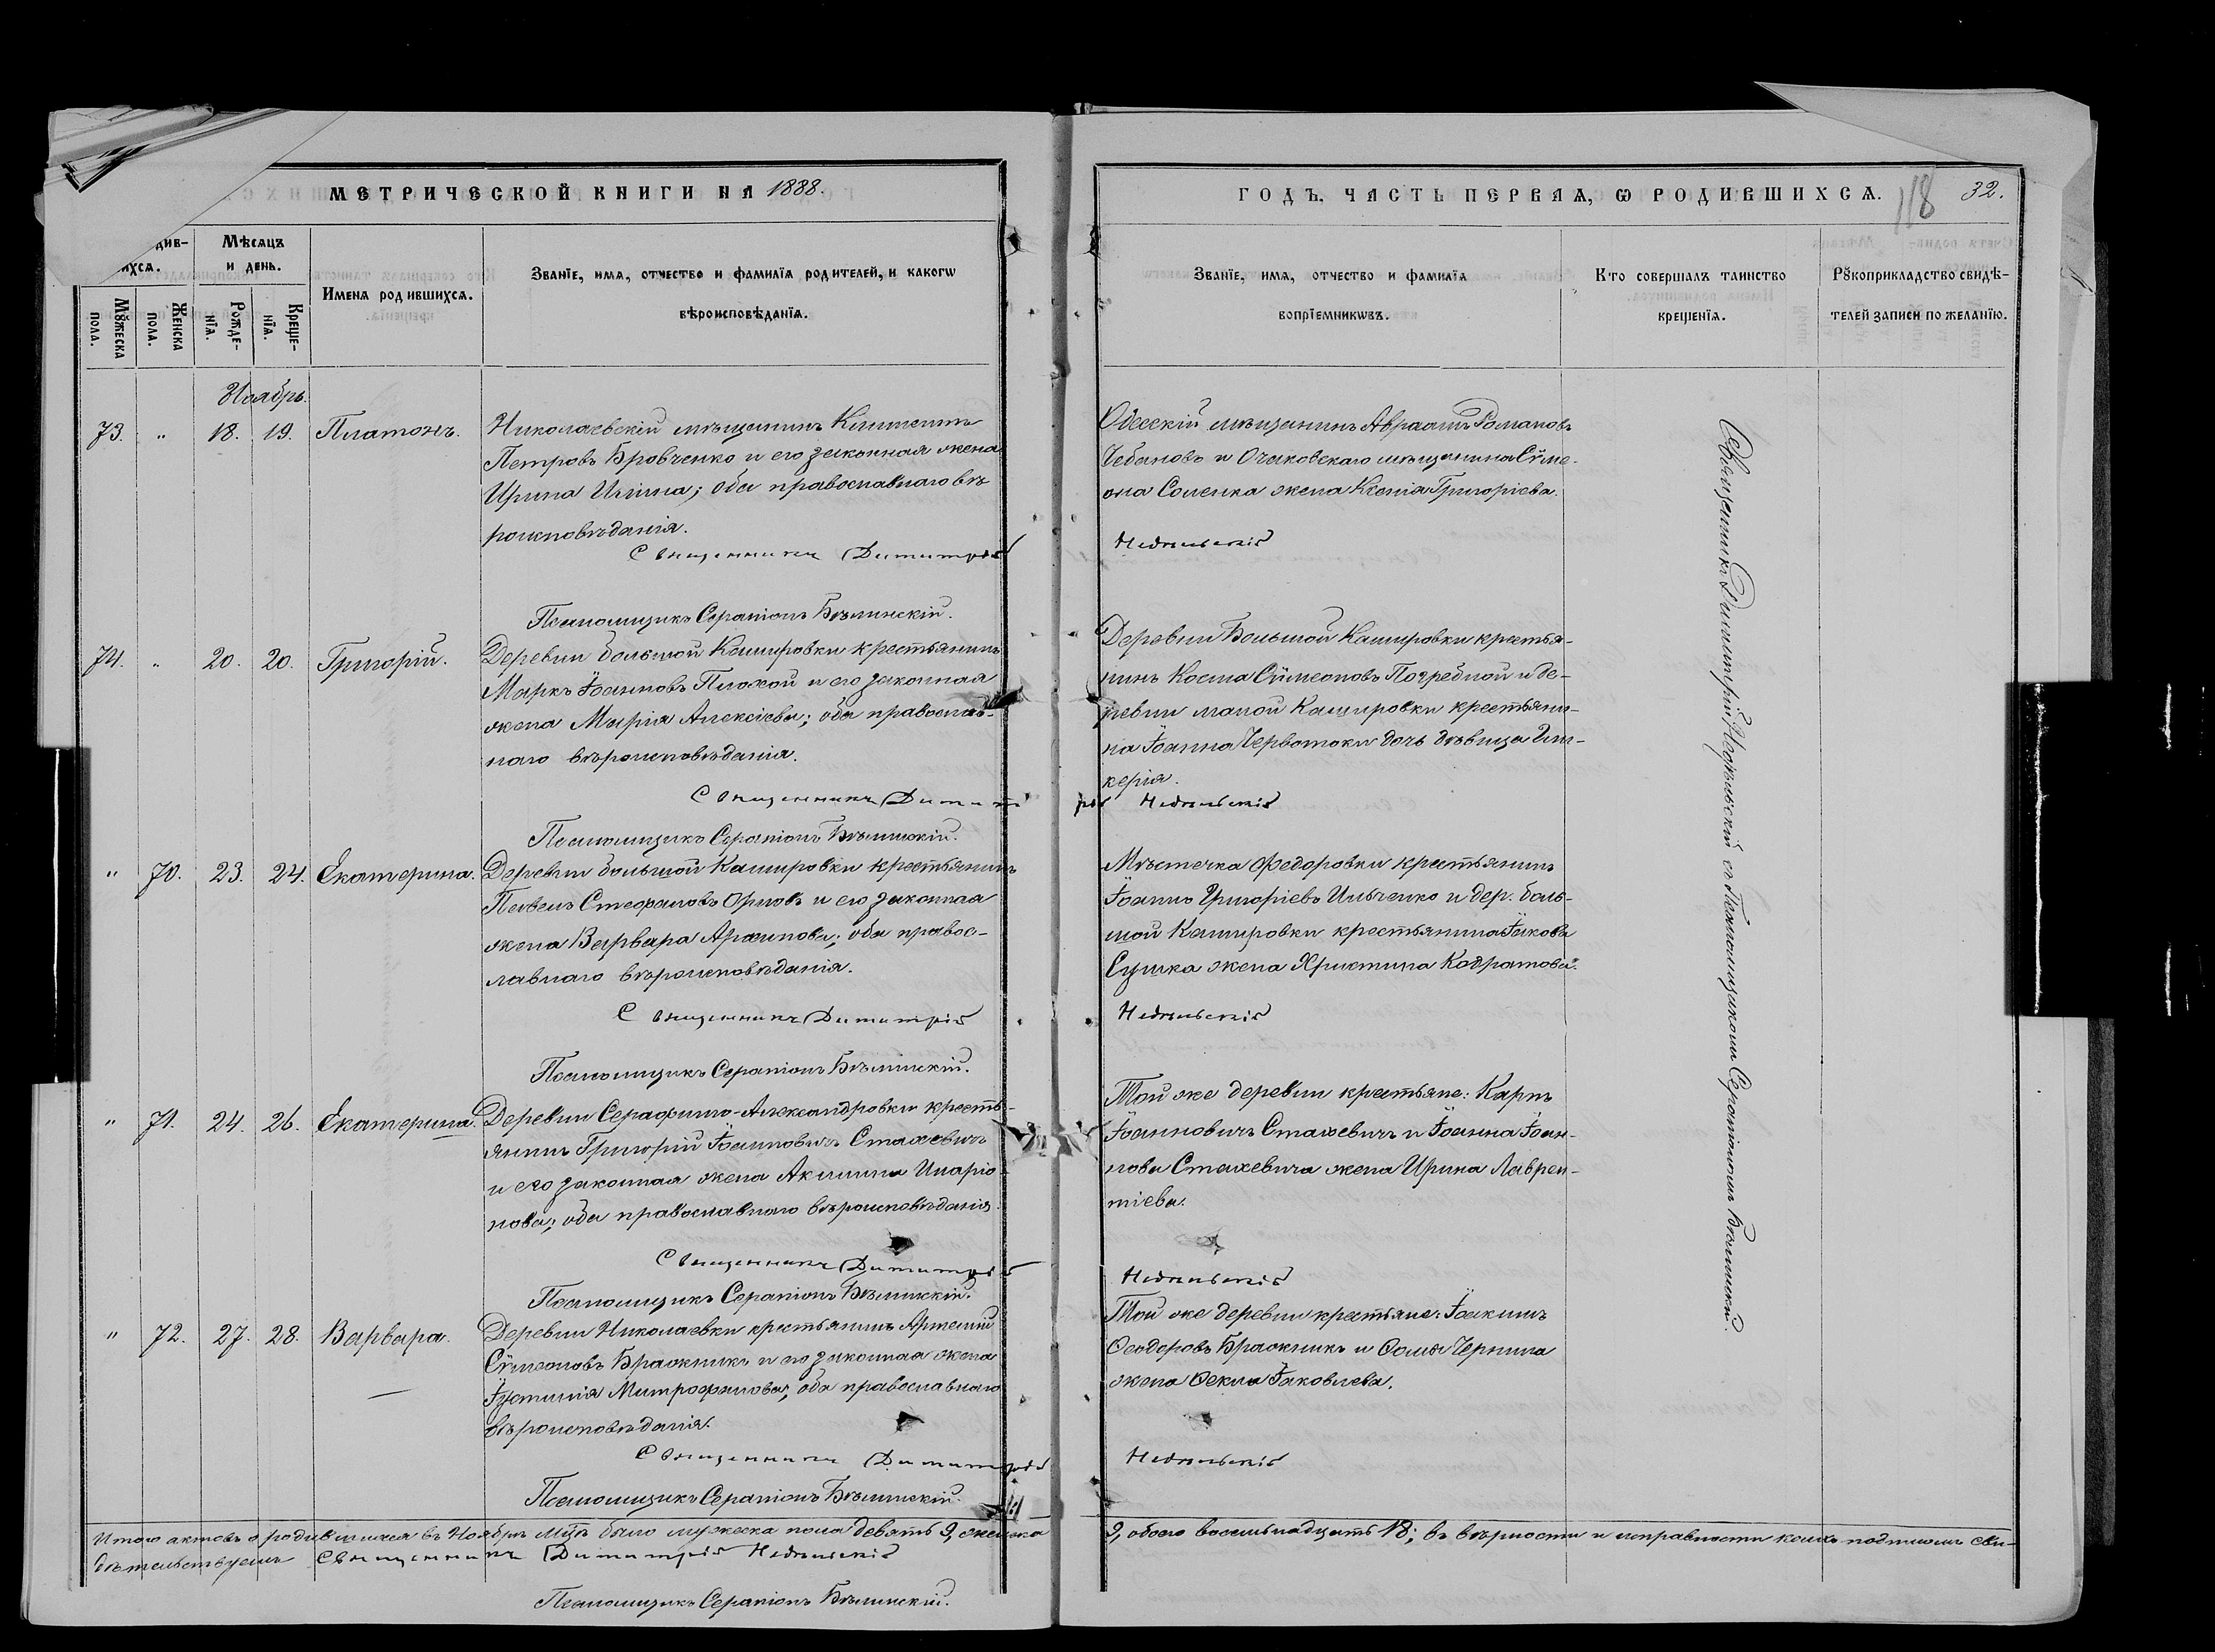 МЕТРИЧЕСКОЙ КНИГИ НА 1888.
ГОДЪ, ЧАСТЬ ПЕРВАЯ, Ѡ РОДИВШИХСѦ.
118
32.
див-
ихсѧ.
Мѣсѧцъ
и день.
Мꙋжеска
пола.
Женска
пола.
Рожде-
нїѧ.
Креще-
нїѧ.
Имена родившихсѧ.
Званїе, имѧ, отчество и фамилїѧ родителей, и какогѡ
вѣроисповѣданїѧ.
Званїе, имѧ, отчество и фамилїѧ
воспрїемникѡвъ.
Кто совершалъ таинство
крещенїѧ.
Рꙋкоприкладство свидѣ-
телей записи по желанїю.
Ноябрь.
73. " 18. 19. Платонъ.
Николаевскій мѣщанинъ Климентъ
Петровъ Бровченко и его законная жена
Ирина Иліина; оба православнаго вѣ-
роисповѣданія.
Священникъ Димитрій
Псаломщикъ Серапіонъ Бѣлинскій.
Одесскій мѣщанинъ Авраамъ Романовъ
Чебановъ и Очаковскаго мѣщанина Сѵме-
она Соленка жена Ксенія Григоріева.
Недѣльскій
74. " 20. 20. Григорій.
Деревни большой Кашировки крестьянинъ
Маркъ Іоанновъ Плохой и его законная
жена Марія Алексіева; оба православ-
наго вѣроисповѣданія.
Священникъ Димит
Псаломщикъ Серапіонъ Бѣлинскій.
Деревни Большой Кашировки крестья-
нинъ Косма Сѵмеоновъ Погребной и де-
ревни малой Кашировки крестьяни-
на Іоанна Червотоки дочь дѣвица Гли-
керія.
рій Недѣльскій
" 70. 23. 24. Екатерина.
Деревни большой Кашировки крестьянинъ
Павелъ Стефановъ Орловъ и его законная
жена Варвара Архипова; оба правос-
лавнаго вѣроисповѣданія.
Священникъ Димитрій
Псаломщикъ Серапіонъ Бѣлинскій.
Мѣстечка Федоровки крестьянинъ
Іоаннъ Григоріевъ Ильченко и дер. боль-
шой Кашировки крестьянина Іакова
Сушка жена Христина Кодратова.
Недѣльскій
" 71. 24. 26. Екатерина.
Деревни Серафимо-Александровки кресть-
янинъ Григорій Іоанновичъ Стахевичъ
и его законная жена Акилина Иларіо-
нова; оба православнаго вѣроисповѣданія.
Священникъ Димитрій
Псаломщикъ Серапіонъ Бѣлинскій.
Той же деревни крестьяне: Карпъ
Іоанновичъ Стахевичъ и Іоанна Іоан-
нова Стахевича жена Ирина Лаврен-
тіева.
Недѣльскій
" 72. 27. 28. Варвара.
Деревни Николаевки крестьянинъ Артемій
Сѵмеоновъ Бражникъ и его законная жена
Іустинія Митрофанова; оба православнаго
вѣроисповѣданія.
Священникъ Димитрій
Псаломщикъ Серапіонъ Бѣлинскій.
Той же деревни крестьяне: Іоакимъ
Ѳеодоровъ Бражникъ и Ѳомы Чернина
жена Ѳекла Іаковлева.
Недѣльскій
Священникъ Димитрій Недѣльскій съ Псаломщикомъ Серапіономъ Бѣлинскимъ.
Итого актовъ о родившихся въ Ноябрѣ м̃цѣ было мужеска пола девять 9, женска
9, обоего восемьнадцать 18; въ вѣрности и исправности коихъ подписомъ сви-
дѣтельствуемъ Священникъ Димитрій Недѣльскій
Псаломщикъ Серапіонъ Бѣлинскій.